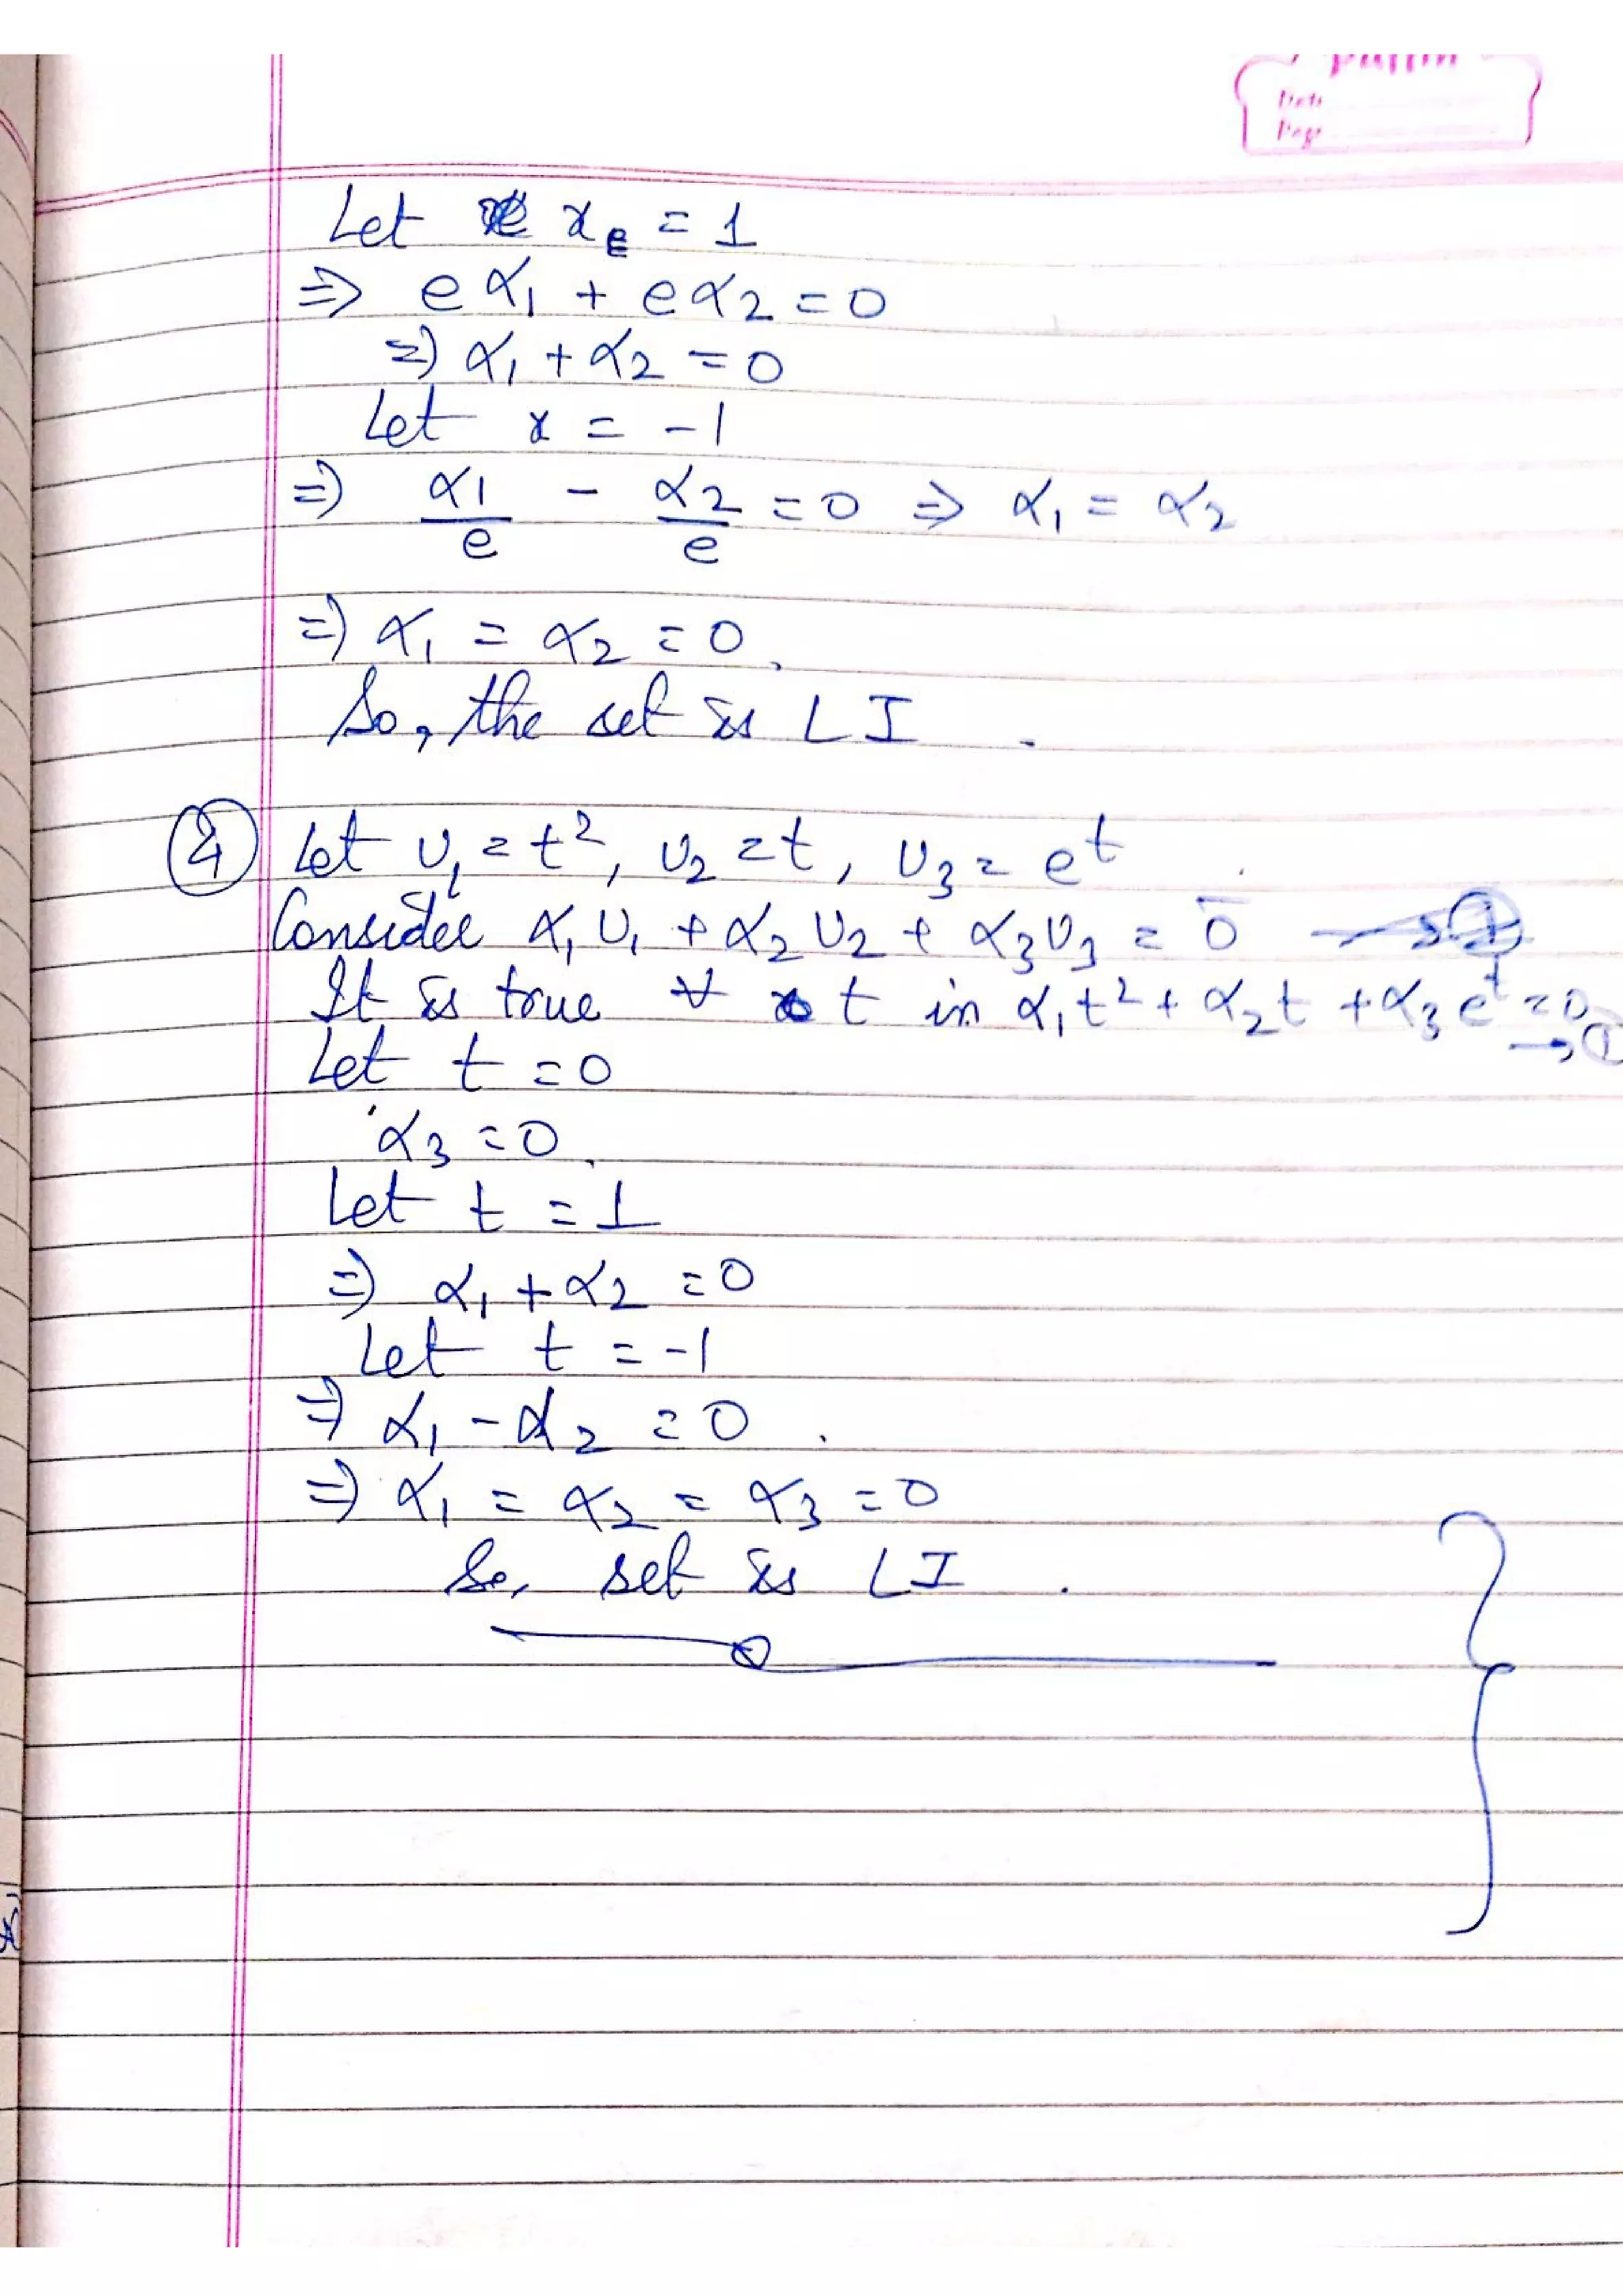 puffin
Date
Page
Let x = 1
⇒ eα₁ + eα₂ = 0
⇒ α₁ + α₂ = 0
Let x = -1
⇒ α₁/e - α₂/e = 0 ⇒ α₁ = α₂
⇒ α₁ = α₂ = 0.
So, the set is LI.
④ Let υ₁ = t², υ₂ = t, υ₃ = eᵗ
Consider α₁υ₁ + α₂υ₂ + α₃υ₃ = 0̄
It is true ∀ t in α₁t² + α₂t + α₃eᵗ = 0 → ①
Let t = 0
α₃ = 0.
Let t = 1
⇒ α₁ + α₂ = 0
Let t = -1
⇒ α₁ - α₂ = 0.
⇒ α₁ = α₂ = α₃ = 0
So, set is LI.